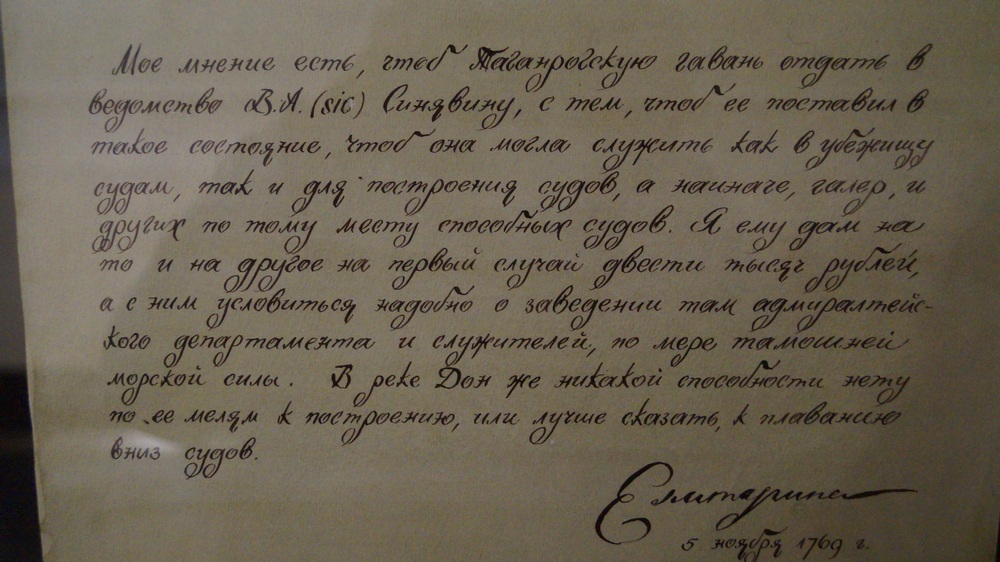 Мое мнение есть, чтоб Таганрогскую гавань отдать в
ведомство В.А. (sic) Синявину, с тем, чтоб ее поставил в
такое состояние, чтоб она могла служить как в убежищу
судам, так и для построения судов, а наиначе, галер, и
других по тому месту способных судов. Я ему дам на
то и на другое на первый случай двести тысяч рублей,
а с ним условиться надобно о заведении там адмиралтейс-
кого департамента и служителей, по мере тамошней
морской силы. В реке Дон же никакой способности нету
по ее мелям к построению, или лучше сказать, к плаванию
вниз судов.
Екатерина
5 ноября 1769 г.